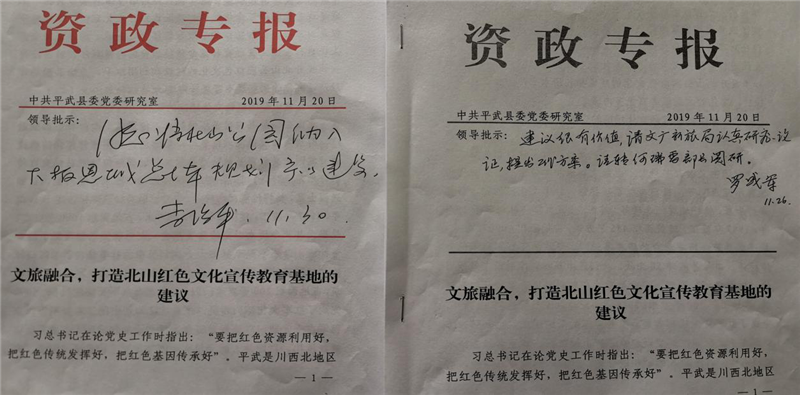 资政专报
中共平武县委党委研究室 2019年11月20日
领导批示:
北山公园纳入
11.30.
文旅融合，打造北山红色文化宣传教育基地的
建议
习总书记在论党史工作时指出：“要把红色资源利用好，
把红色传统发挥好，把红色基因传承好”。平武是川西北地区
—1—
资政专报
中共平武县委党委研究室 2019年11月20日
领导批示: 建议很有价值，请文广新旅局认真研究、论
证，提出工作方案。请转何瑞雪部长阅研。
罗成军
11.26.
文旅融合，打造北山红色文化宣传教育基地的
建议
习总书记在论党史工作时指出：“要把红色资源利用好，
把红色传统发挥好，把红色基因传承好”。平武是川西北地区
—1—